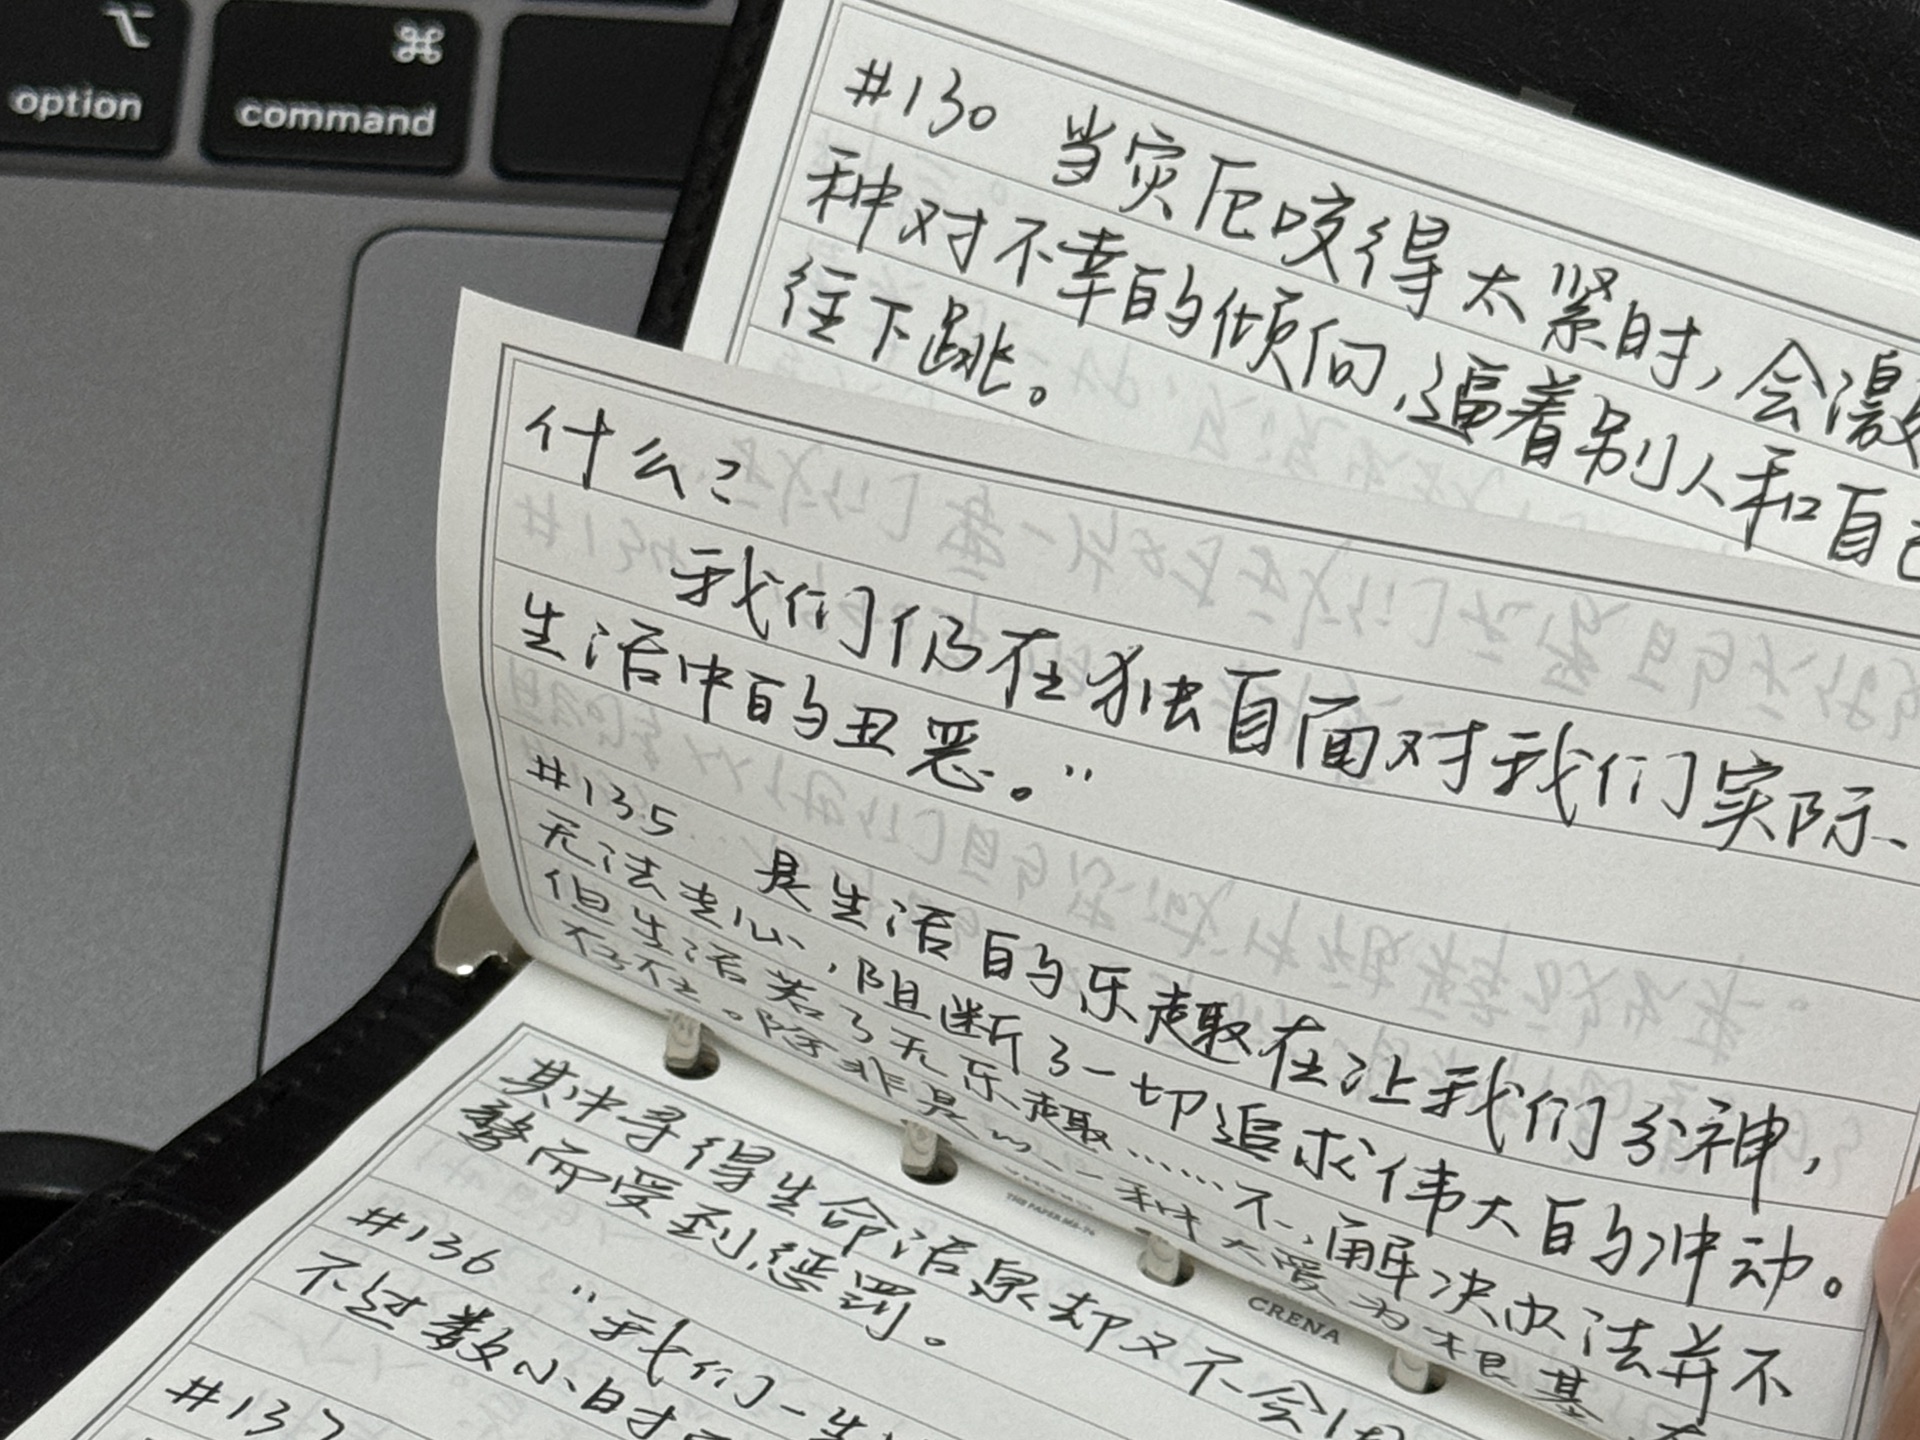 option
⌘
command
#130 当灾厄咬得太紧时,会激
种对不幸的倾向,逼着别人和自己
往下跳。
什么?
我们仍在独自面对我们实际、
生活中的丑恶。”
#135 是生活的乐趣在让我们分神,
无法专心,阻断了一切追求伟大的冲动。
但生活若了无乐趣……不,解决办法并不
存在。除非是以一种大爱为根基
THE PAPER
CRENA
其中寻得生命活泉却又不会因
而受到惩罚。
#136 “我们一生
不过数小时
#137